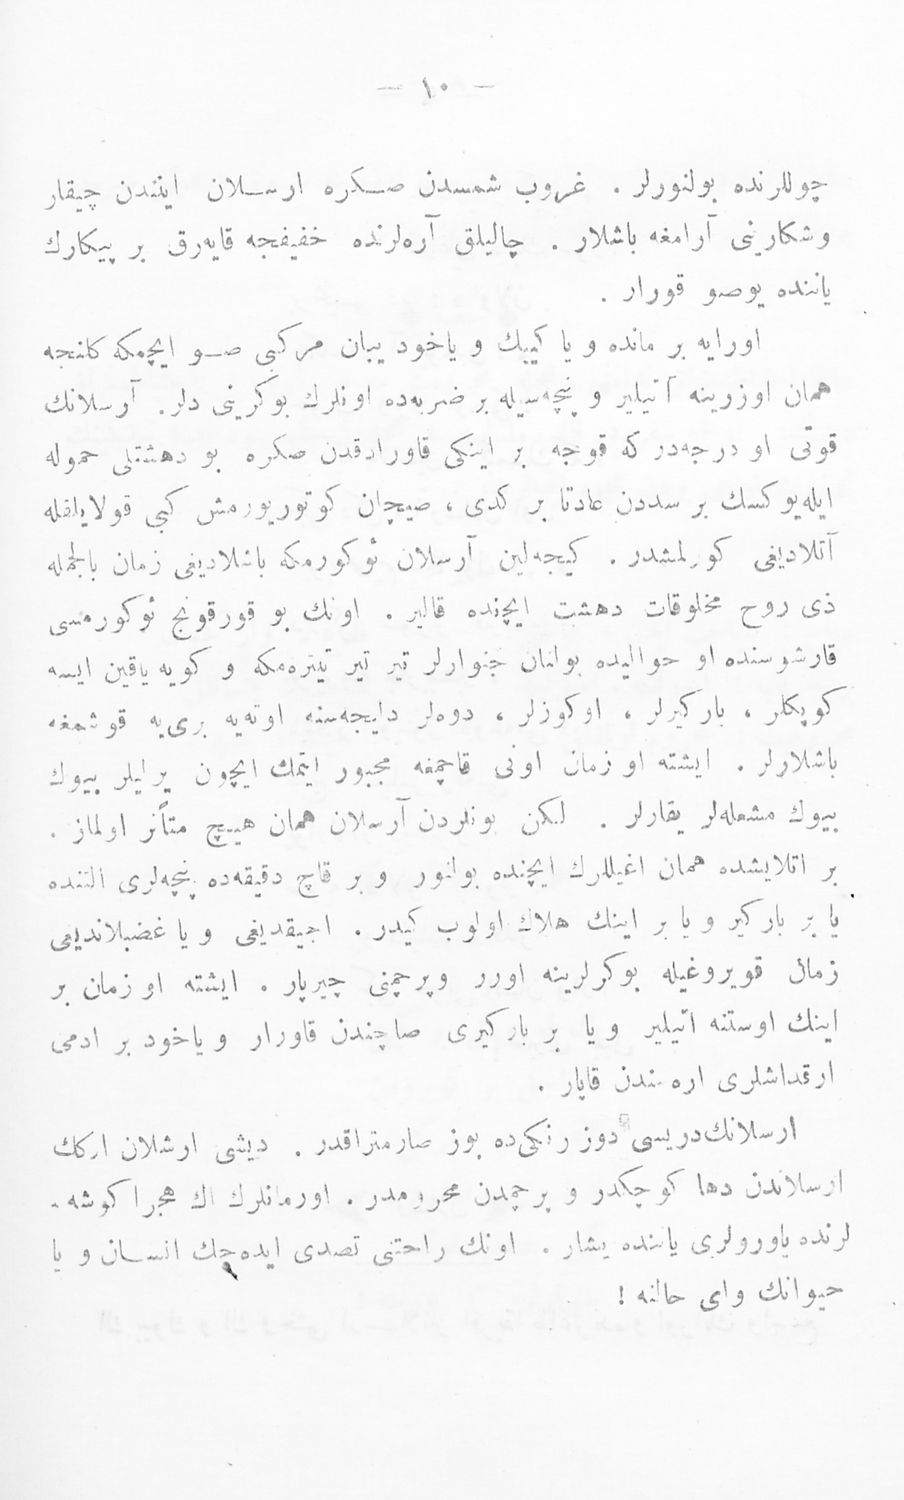 — ١٠ —
چوللرنده بولنورلر . غروب شمسدن صكره ارسلان ايندن چيقار
وشكارينى آرامغه باشلار . چاليلق آره‌لرنده خفيفجه قايه‌رق بر پيكارك
ياننده پوصو قورار .
اورايه بر مانده و يا كييك و ياخود يبان مركبى صو ايچمكه كلنجه
همان اوزرينه آتيلير و پنچه‌سيله بر ضربه‌ده اونلرك بوكرينى دلر. آرسلانك
قوتى او درجه‌در كه قوجه بر اينكى قاورادقدن صكره بو دهشتلى حموله
ايله يوكسك بر سددن عادتا بر كدى ، صيچان كوتوريورمش كبى قولايلقله
آتلاديغى كورلمشدر . كيجه‌لين آرسلان ئوكورمكه باشلاديغى زمان بالجمله
ذى روح مخلوقات دهشت ايچنده قالير . اونك بو قورقونج ئوكورمسى
قارشوسنده او حواليده بولنان جنوارلر تير تير تيتره‌مكه و كويه ياقين ايسه
كوپكلر ، باركيرلر ، اوكوزلر ، دوه‌لر دليجه‌سنه اوته‌يه برى‌يه قوشمغه
باشلارلر . ايشته او زمان اونى قاچمغه مجبور ايتمك ايچون يرليلر بيوك
بيوك مشعله‌لر يقارلر . لكن بونلردن آرسلان همان هيچ متأثر اولماز .
بر اتلايشده همان اغيللرك ايچنده بولنور و بر قاچ دقيقه‌ده پنچه‌لرى التنده
يا بر باركير و يا بر اينك هلاك اولوب كيدر . اجيقديغى و يا غضبلانديغى
زمان قويروغيله بوكرلرينه اورر وپرچمنى چيرپار . ايشته او زمان بر
اينك اوستنه اتيلير و يا بر باركيرى صاچندن قاورار و ياخود بر ادمى
ارقداشلرى اره سندن قاپار .
ارسلانك دريسى دوز رنكى‌ده بوز صارمتراقدر . ديشى ارشلان اركك
ارسلاندن دها كوچكدر و پرچمدن محرومدر . اورمانلرك اك هجرا كوشه-
لرنده ياورولرى ياننده يشار . اونك راحتنى تصدى ايده‌جك انسان و يا
حيوانك واى حالنه !